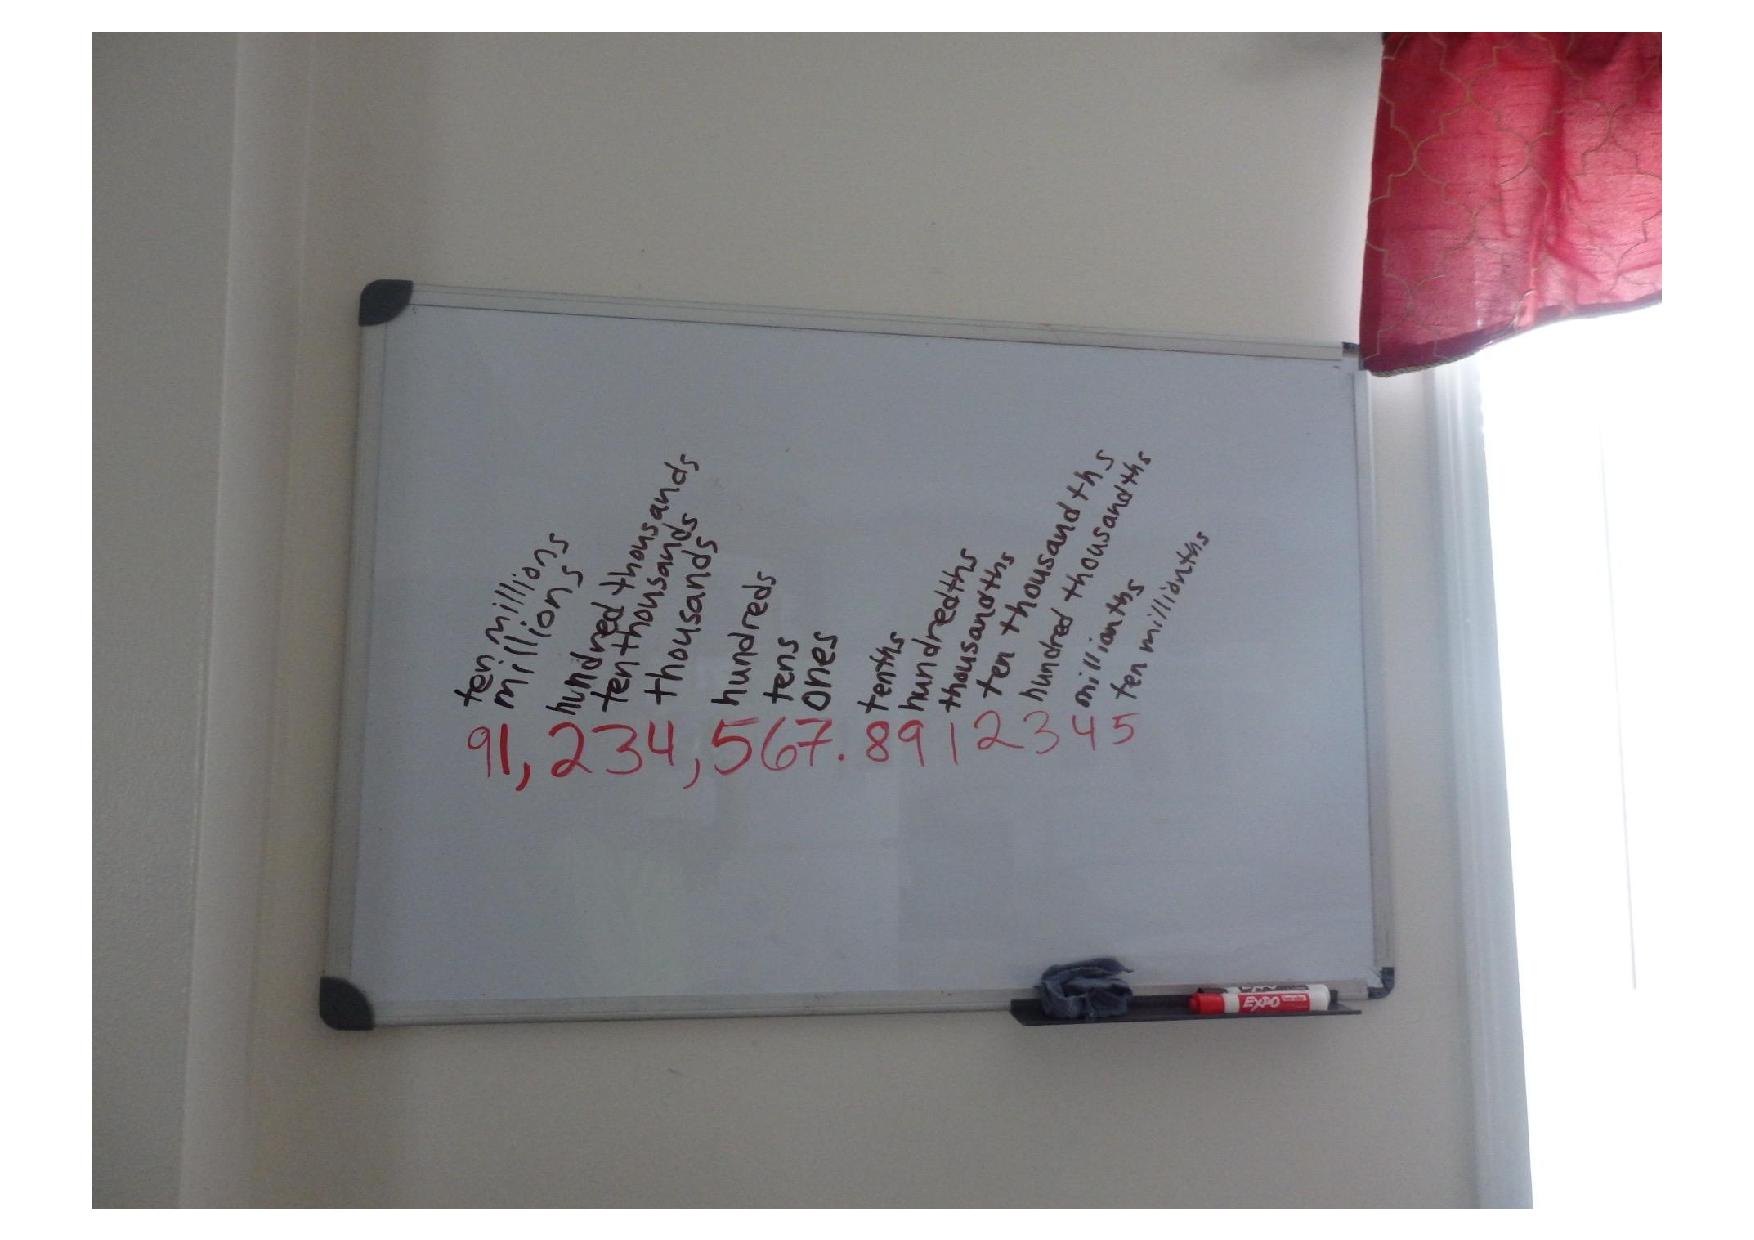 ten millions
millions
hundred thousands
ten thousands
thousands
hundreds
tens
ones
tenths
hundredths
thousandths
ten thousandths
hundred thousandths
millionths
ten millionths
91,234,567.8912345
EXPO